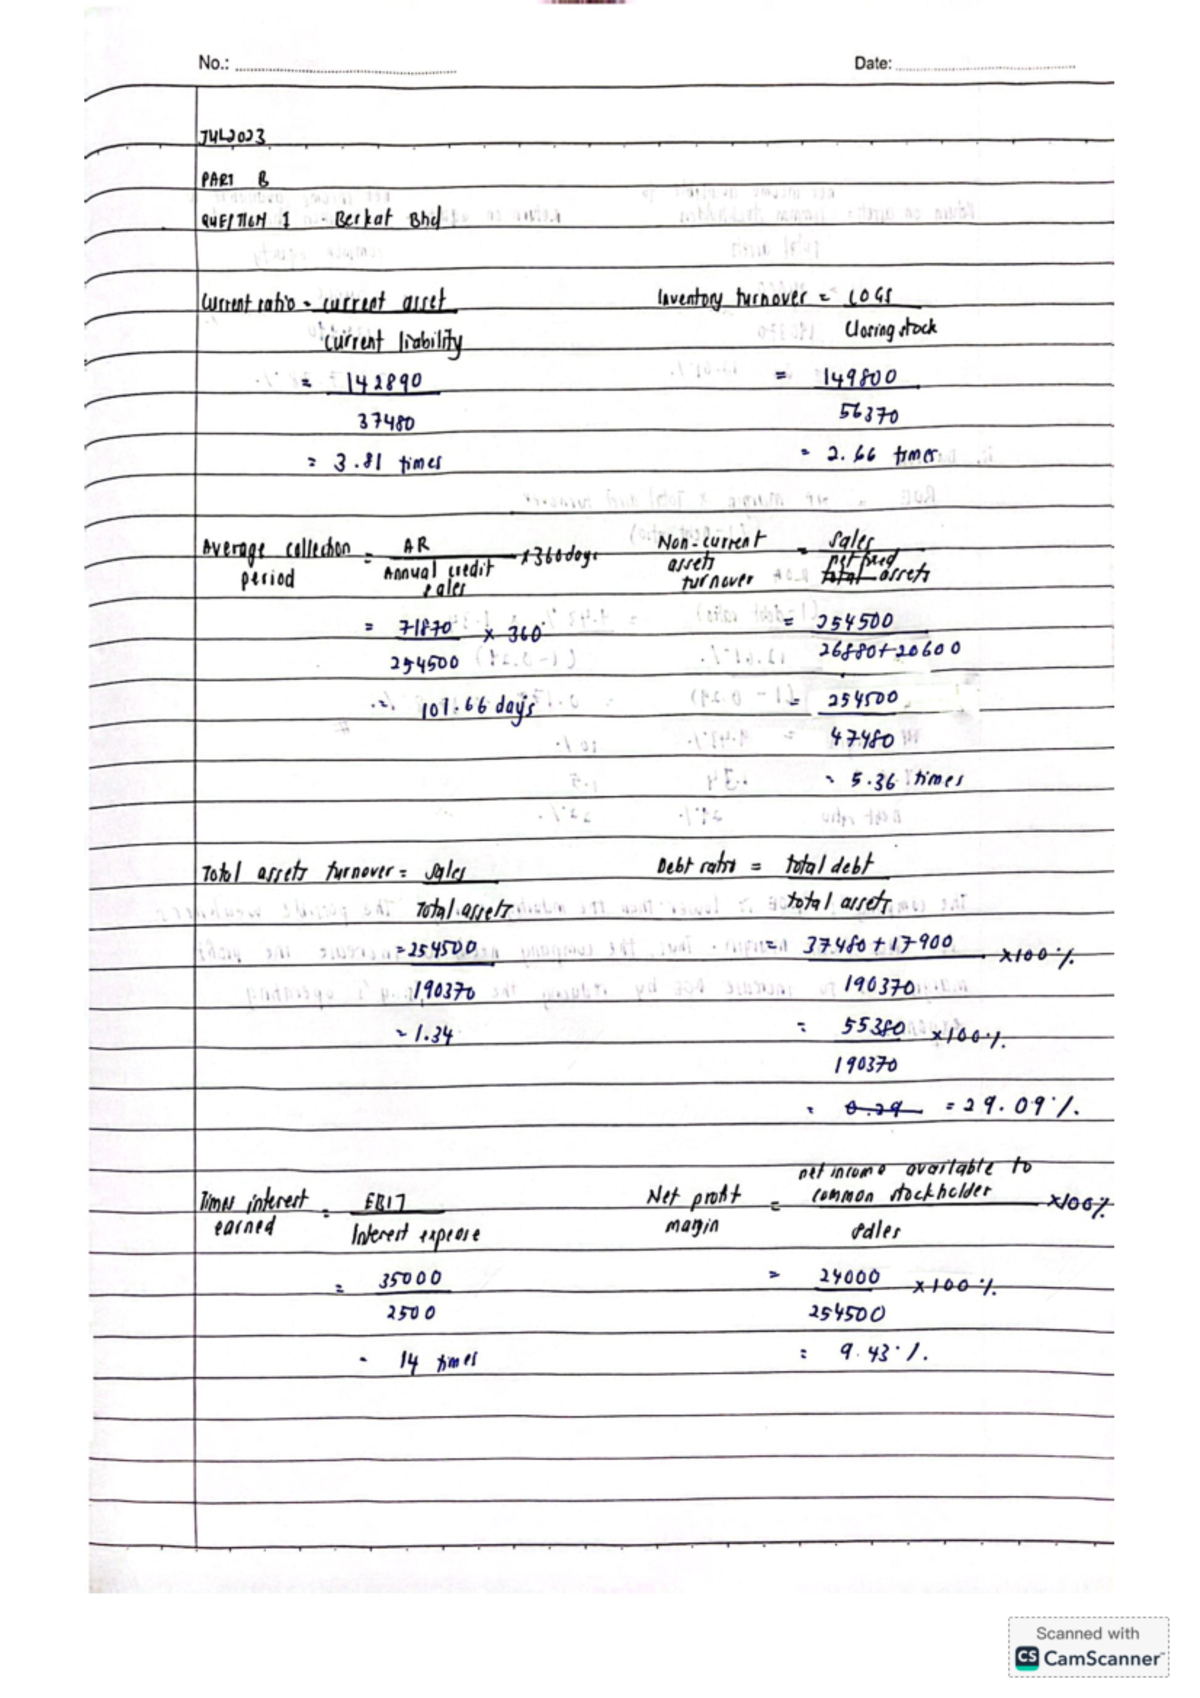 No.: Date:
JUL2023
PART B
QUESTION 1 Berkat Bhd
Current ratio = current asset
current liability
= 142890
37480
= 3.81 times
Inventory turnover = COGS
Closing stock
= 149800
56370
= 2.66 times
Average collection period = AR x 360 days
Annual credit sales
= 71870 x 360
254500
= 101.66 days
Non-current assets turnover = Sales
net fixed total assets
= 254500
26880+20600
= 254500
47480
= 5.36 times
Total assets turnover = Sales
Total assets
= 254500
190370
= 1.34
Debt ratio = total debt
total assets
= 37480+17900 x100%
190370
= 55380 x100%
190370
= 0.29 = 29.09%
Times interest earned = EBIT
Interest expense
= 35000
2500
= 14 times
Net profit margin = net income available to common stockholder x100%
sales
= 24000 x100%
254500
= 9.43%
Scanned with
CS CamScanner